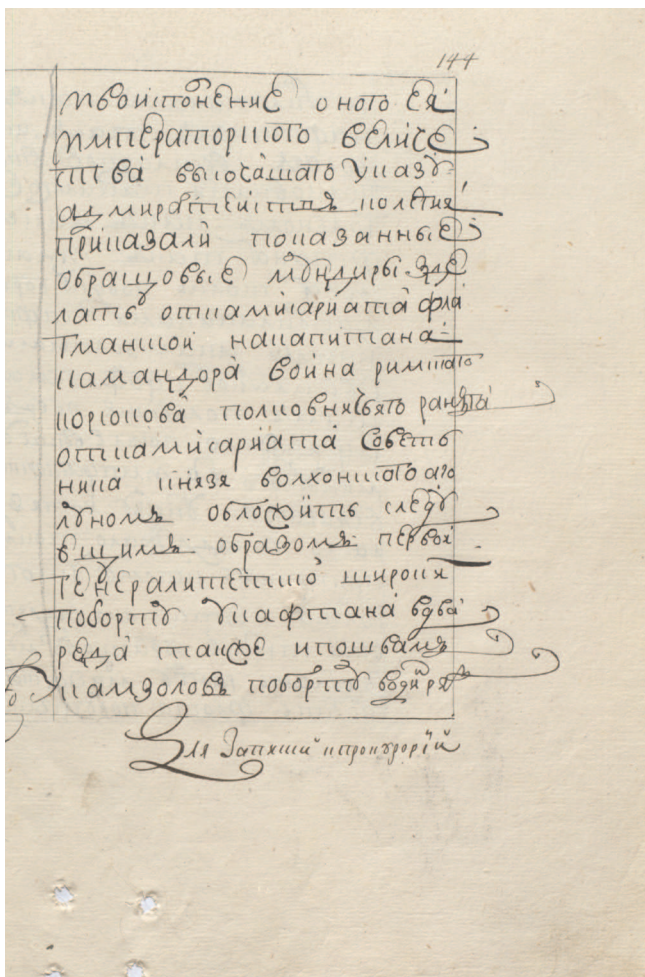 144
и во исполнение оного ея
императорского величе
ства высочашаго указу
адмиралтейская колегия
приказали показанные
обращовые мундиры зде
лать от камисариата фла
гманской на капитана
камандора
полковничьяго ранга
от камисариата советь
ника князя волхонского
обложить следу
ещимъ образомъ первой
генералитетской широкия
по борту у кафтана в два
реда также и по швамъ
у камзоловъ по борту в один ря